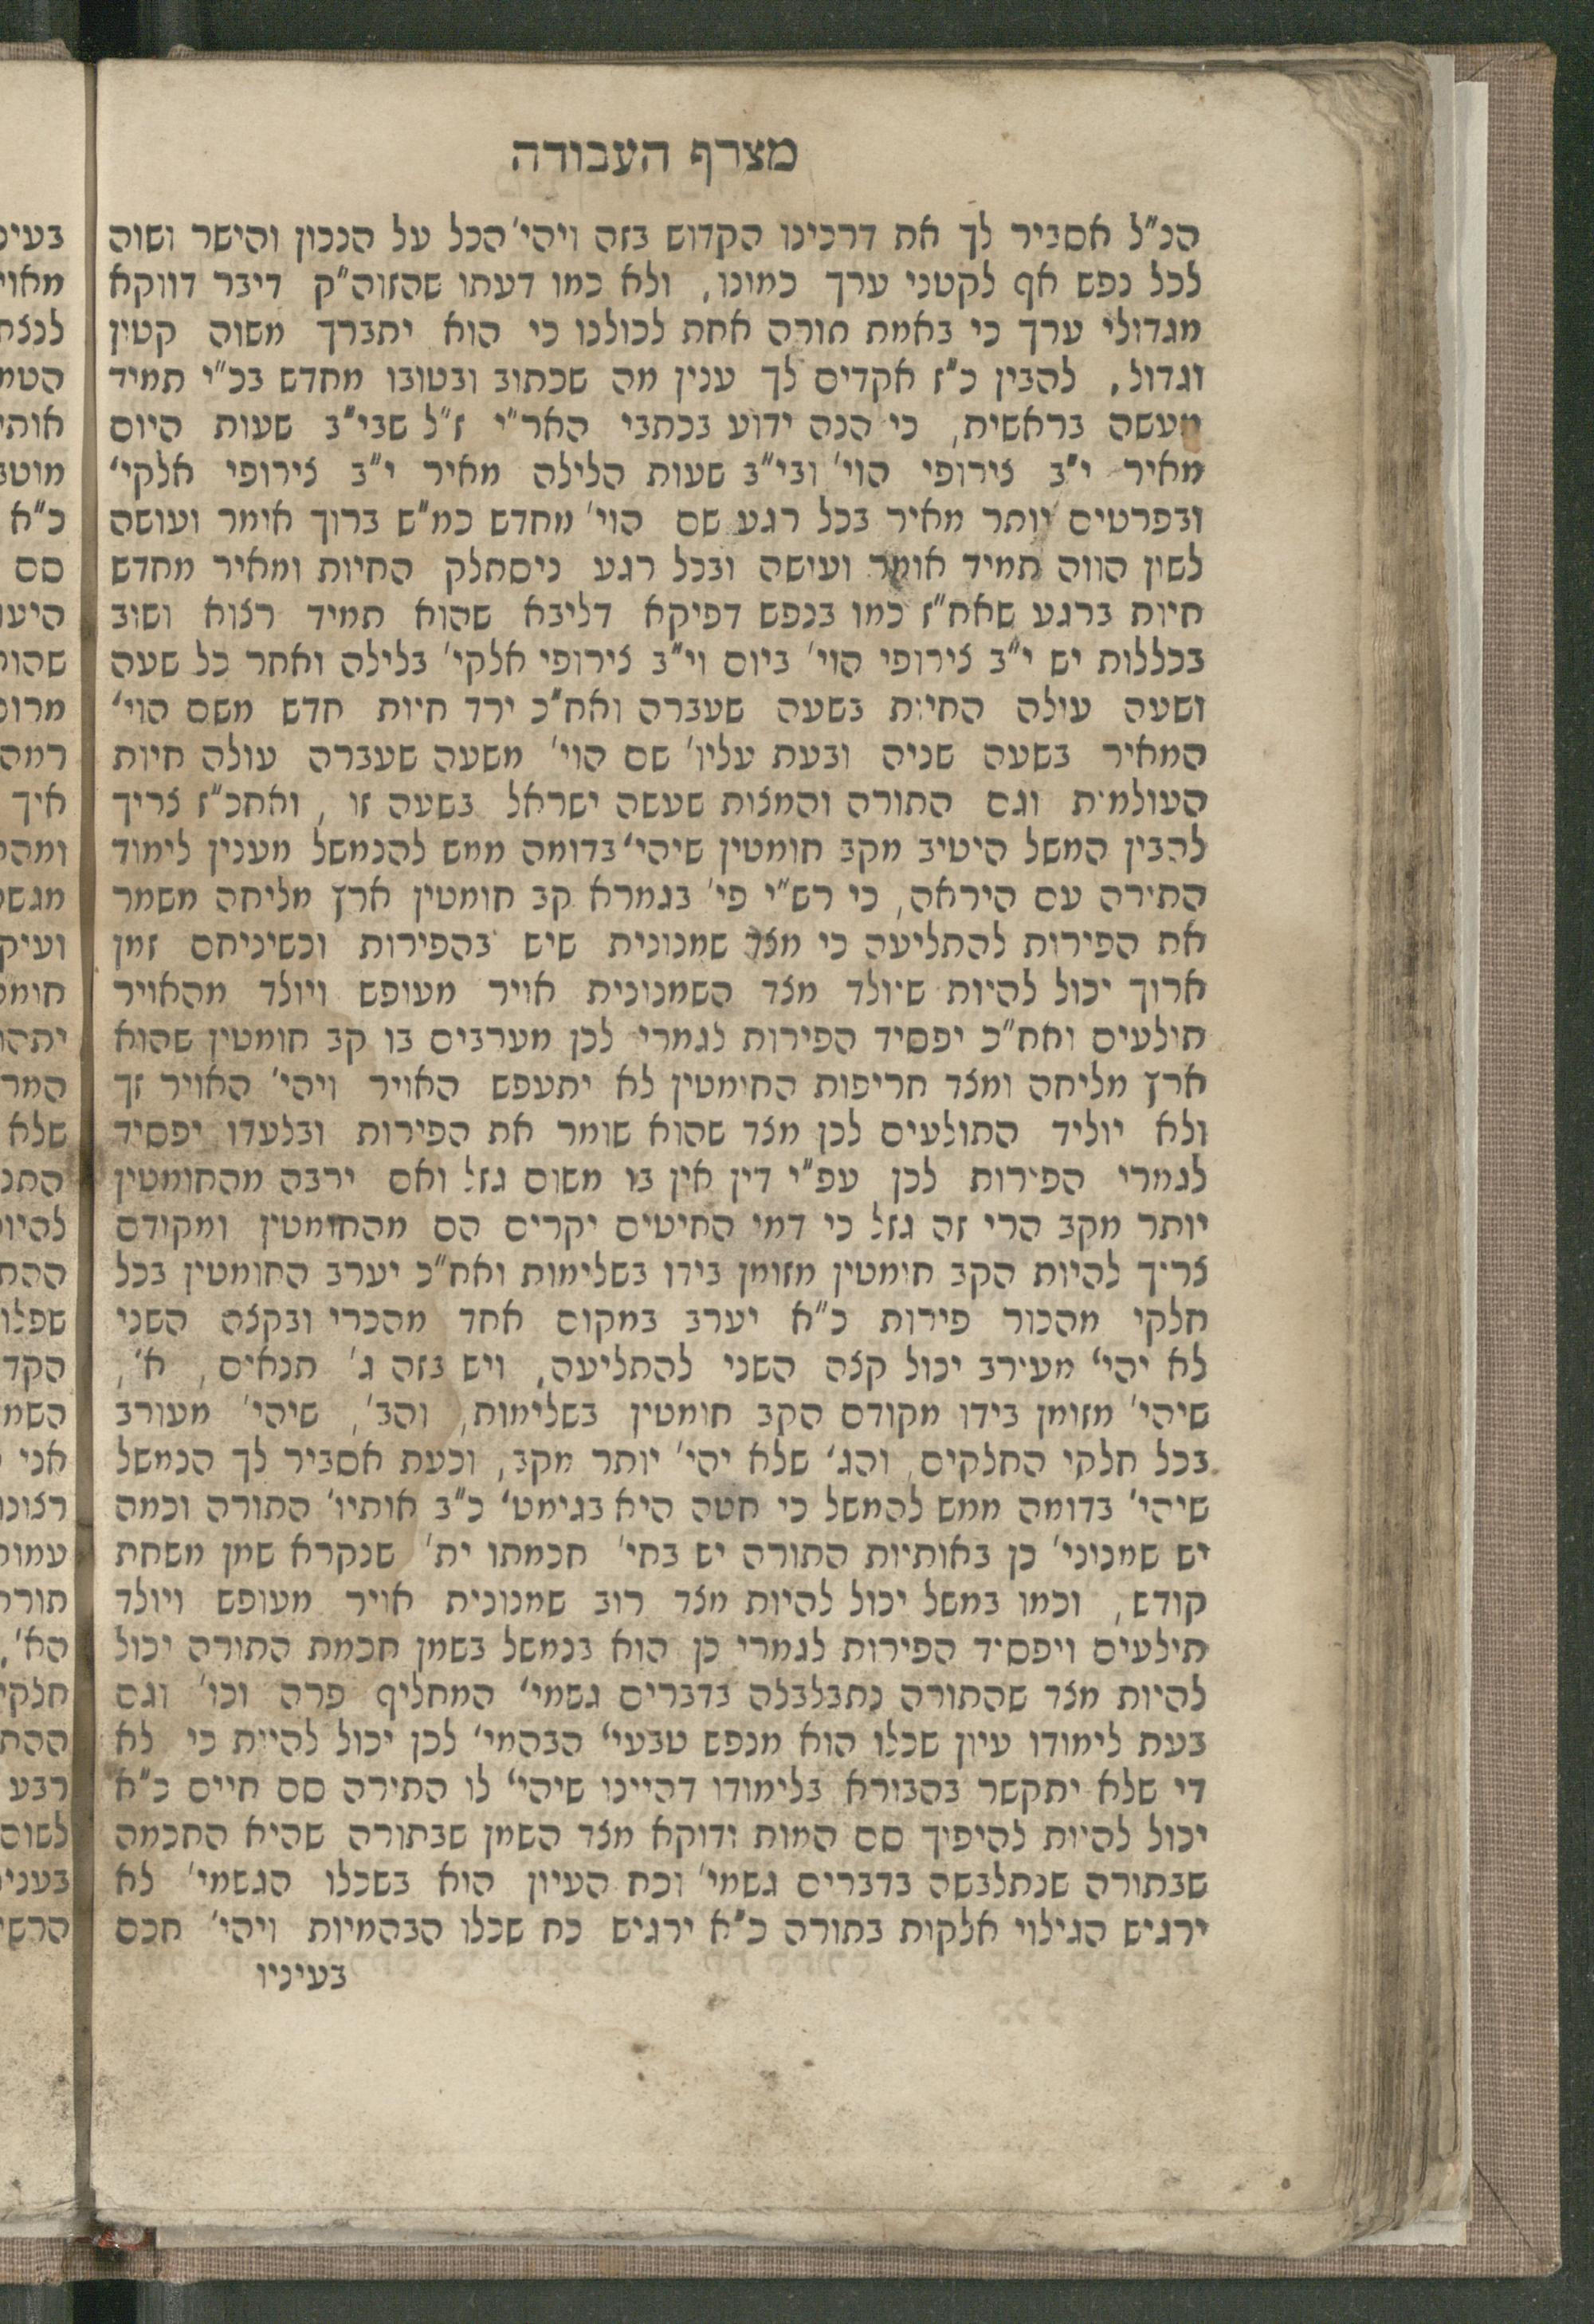 מצרף העבודה
הנ"ל אסביר לך את דרכינו הקדוש בזה ויהי' הכל על הנכון והישר ושוה
לכל נפש אף לקטני ערך כמונו, ולא כמו דעתו שהזוה"ק דיבר דווקא
מגדולי ערך כי באמת תורה אחת לכולנו כי הוא יתברך משוה קטן
וגדול, להבין כ"ז אקדים לך ענין מה שכתוב ובטובו מחדש בכ"י תמיד
מעשה בראשית, כי הנה ידוע בכתבי האר"י ז"ל שבי"ב שעות היום
מאיר י"ב צירופי הוי' ובי"ב שעות הלילה מאיר י"ב צירופי אלקי'
ובפרטים יותר מאיר בכל רגע שם הוי' מחדש כמ"ש ברוך אומר ועושה
לשון הווה תמיד אומר ועושה ובכל רגע ניסתלק החיות ומאיר מחדש
חיות ברגע שאח"ז כמו בנפש דפיקא דליבא שהוא תמיד רצוא ושוב
בכללות יש י"ב צירופי הוי' ביום וי"ב צירופי אלקי' בלילה ואחר כל שעה
ושעה עולה החיות בשעה שעברה ואח"כ ירד חיות חדש משם הוי'
המאיר בשעה שניה ובעת עליו' שם הוי' משעה שעברה עולה חיות
העולמות וגם התורה והמצות שעשה ישראל בשעה זו, ואחכ"ז צריך
להבין המשל היטיב מקב חומטין שיהי' בדומה ממש להנמשל מענין לימוד
התורה עם היראה, כי רש"י פי' בגמרא קב חומטין ארץ מליחה משמר
את הפירות להתליעה כי מצד שמנונית שיש בהפירות וכשיניחם זמן
ארוך יכול להיות שיולד מצד השמנונית אויר מעופש ויולד מהאויר
תולעים ואח"כ יפסיד הפירות לגמרי לכן מערבים בו קב חומטין שהוא
ארץ מליחה ומצד חריפות החומטין לא יתעפש האויר ויהי' האויר זך
ולא יוליד התולעים לכן מצד שהוא שומר את הפירות ובלעדו יפסיד
לגמרי הפירות לכן עפ"י דין אין בו משום גזל ואם ירבה מהחומטין
יותר מקב הרי זה גזל כי דמי החיטים יקרים הם מהחומטין ומקודם
צריך להיות הקב חומטין מזומן בידו בשלימות ואח"כ יערב החומטין בכל
חלקי מהכור פירות כ"א יערב במקום אחד מהכרי ובקצה השני
לא יהי' מעורב יכול קצה השני להתליעה, ויש בזה ג' תנאים, א',
שיהי' מזומן בידו מקודם הקב חומטין בשלימות, והב', שיהי' מעורב
בכל חלקי החלקים, והג' שלא יהי' יותר מקב, וכעת אסביר לך הנמשל
שיהי' בדומה ממש להמשל כי חטה היא בגימט' כ"ב אותיו' התורה וכמה
יש שמנוני' כן באותיות התורה יש בחי' חכמתו ית' שנקרא שמן משחת
קודש, וכמו במשל יכול להיות מצד רוב שמנונית אויר מעופש ויולד
תולעים ויפסיד הפירות לגמרי כן הוא בנמשל בשמן חכמת התורה יכול
להיות מצד שהתורה נתבלבלה בדברים גשמי' המחליף פרה וכו' וגם
בעת לימודו עיון שכלו הוא מנפש טבעי' הבהמי' לכן יכול להיות כי לא
די שלא יתקשר בהבורא בלימודו דהיינו שיהי' לו התורה סם חיים כ"א
יכול להיות להיפיך סם המות ודוקא מצד השמן שבתורה שהיא החכמה
שבתורה שנתלבשה בדברים גשמי' וכח העיון הוא בשכלו הגשמי' לא
ירגיש הגילוי אלקות בתורה כ"א ירגיש כח שכלו הבהמיות ויהי' חכם
בעיניו